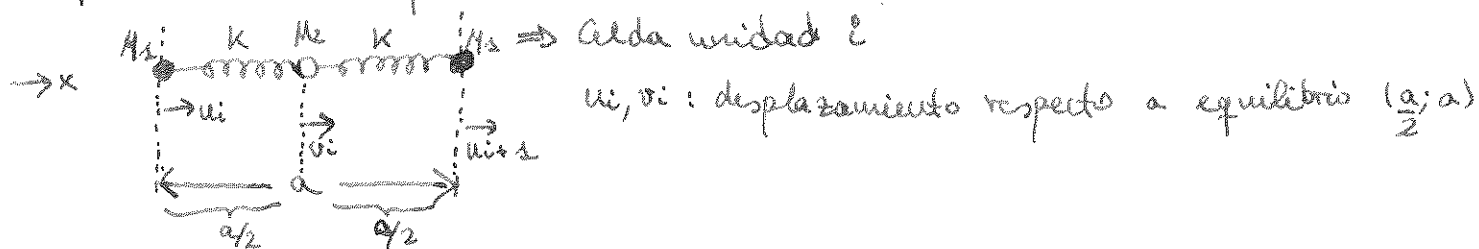 M1 K M2 K M1 ⇒ Celda unidad i
→x
ui vi ui+1
ui, vi : desplazamiento respecto a equilibrio (a/2; a)
a
a/2 a/2